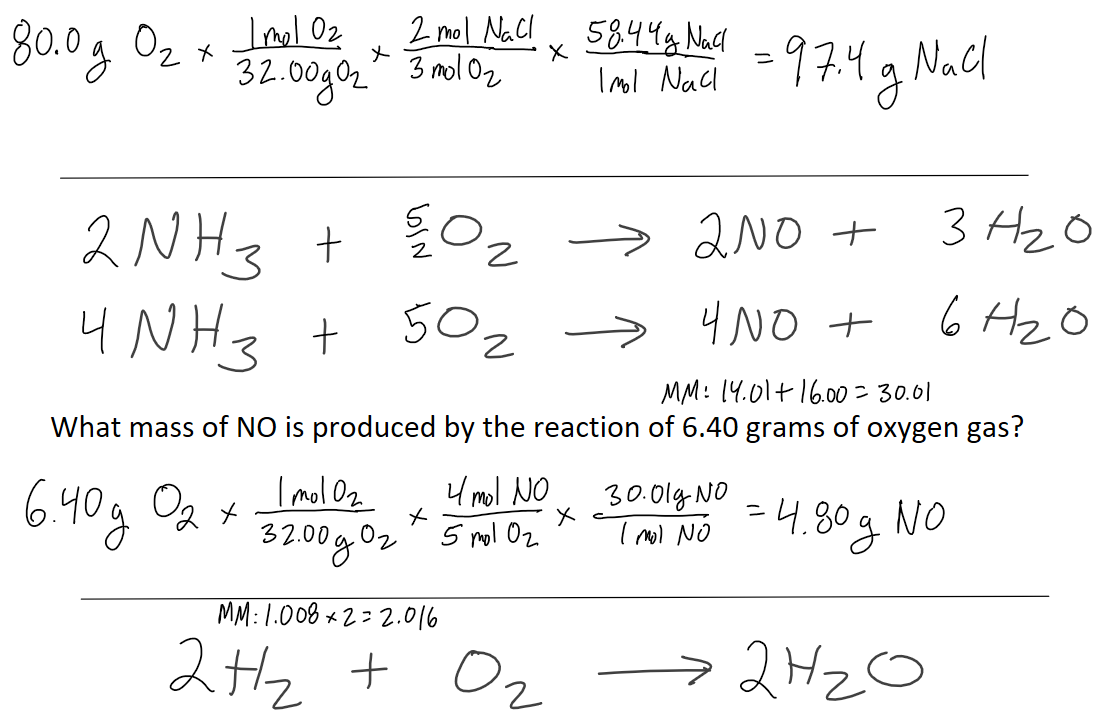 80.0 g O₂ × 1 mol O₂ / 32.00 g O₂ × 2 mol NaCl / 3 mol O₂ × 58.44 g NaCl / 1 mol NaCl = 97.4 g NaCl
2 NH₃ + 5/2 O₂ → 2NO + 3 H₂O
4 NH₃ + 5O₂ → 4NO + 6 H₂O
MM: 14.01 + 16.00 = 30.01
What mass of NO is produced by the reaction of 6.40 grams of oxygen gas?
6.40 g O₂ × 1 mol O₂ / 32.00 g O₂ × 4 mol NO / 5 mol O₂ × 30.01 g NO / 1 mol NO = 4.80 g NO
MM: 1.008 × 2 = 2.016
2H₂ + O₂ → 2H₂O